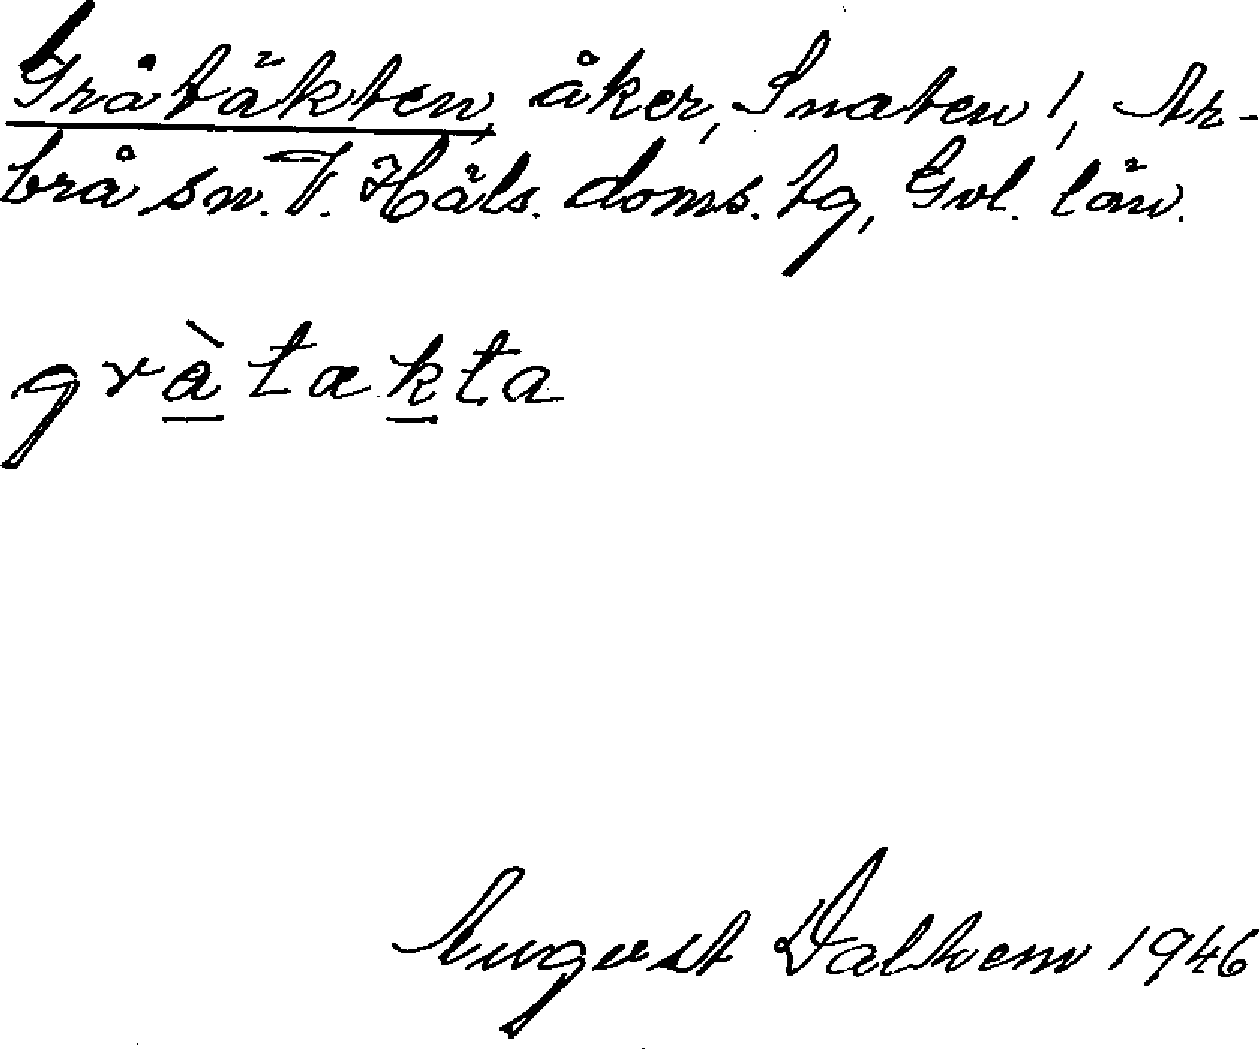 Gråtäkten, åker, Snaten 1, Ar-
brå sn. V. Häls. doms. tg, Gvl. län.
gràtækta
August Dalhem 1946